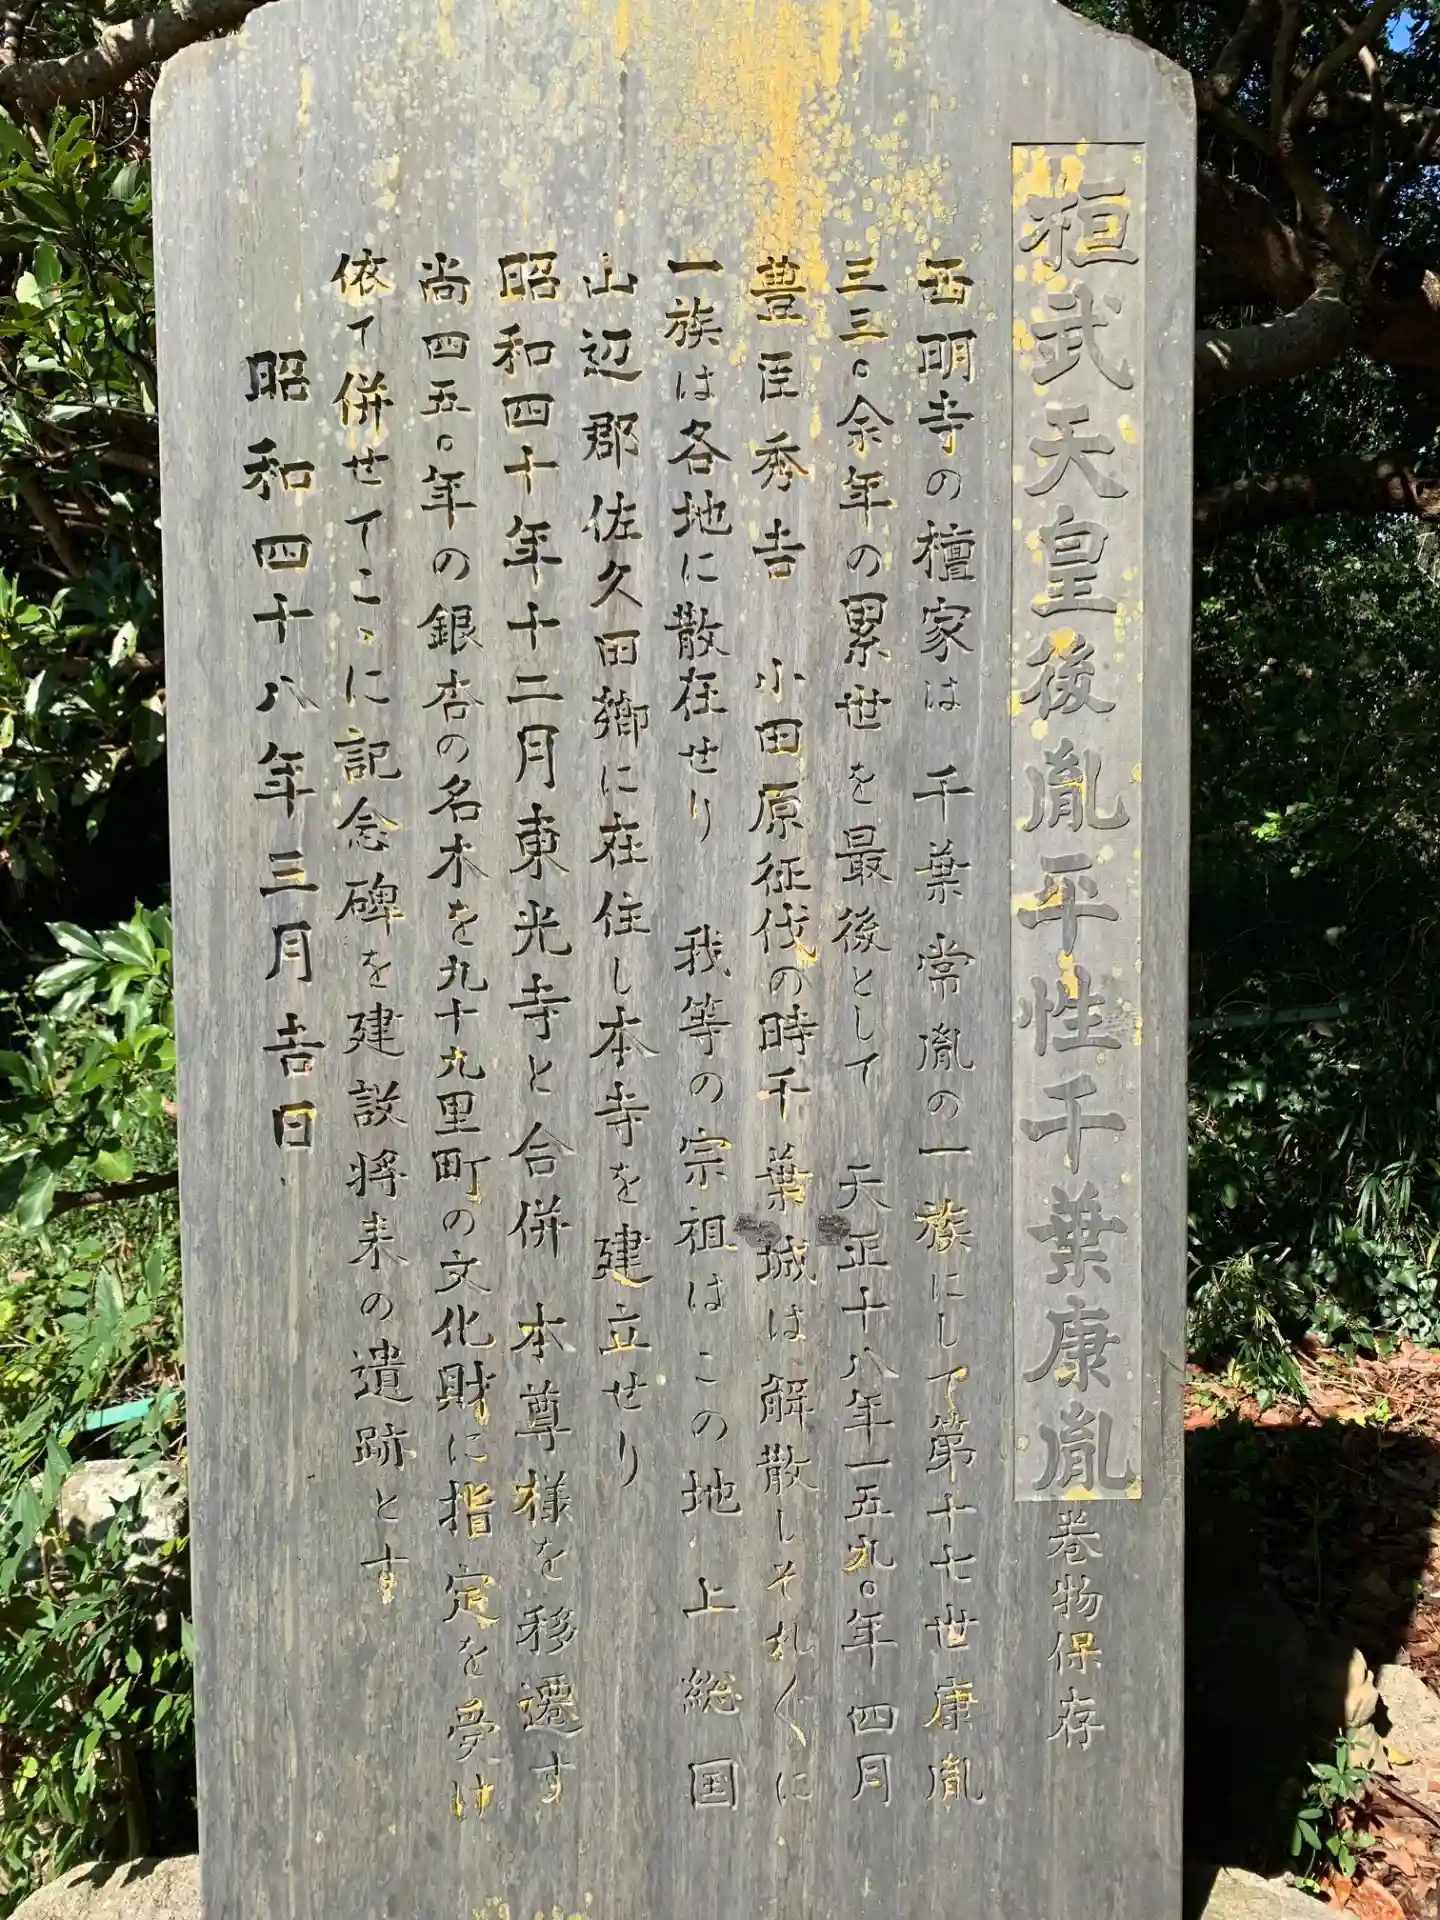 桓武天皇後胤平性千葉康胤 巻物保存
西明寺の檀家は 千葉常胤の一族にして第十七世康胤
三三〇余年の累世を最後として 天正十八年一五九〇年四月
豊臣秀吉 小田原征伐の時千葉城は解散しそれ〱に
一族は各地に散在せり 我等の宗祖はこの地 上総国
山辺郡佐久田郷に在住し本寺を建立せり
昭和四十年十二月東光寺と合併 本尊様を移遷す
尚四五〇年の銀杏の名木を九十九里町の文化財に指定を受け
依て併せてこゝに記念碑を建設将来の遺跡とす
昭和四十八年三月吉日